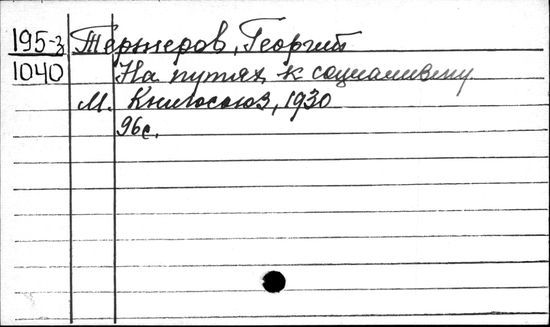 195-3 Тернеров, Георгий
1040 На путях к социализму
М. Книгосоюз, 1930
96с.